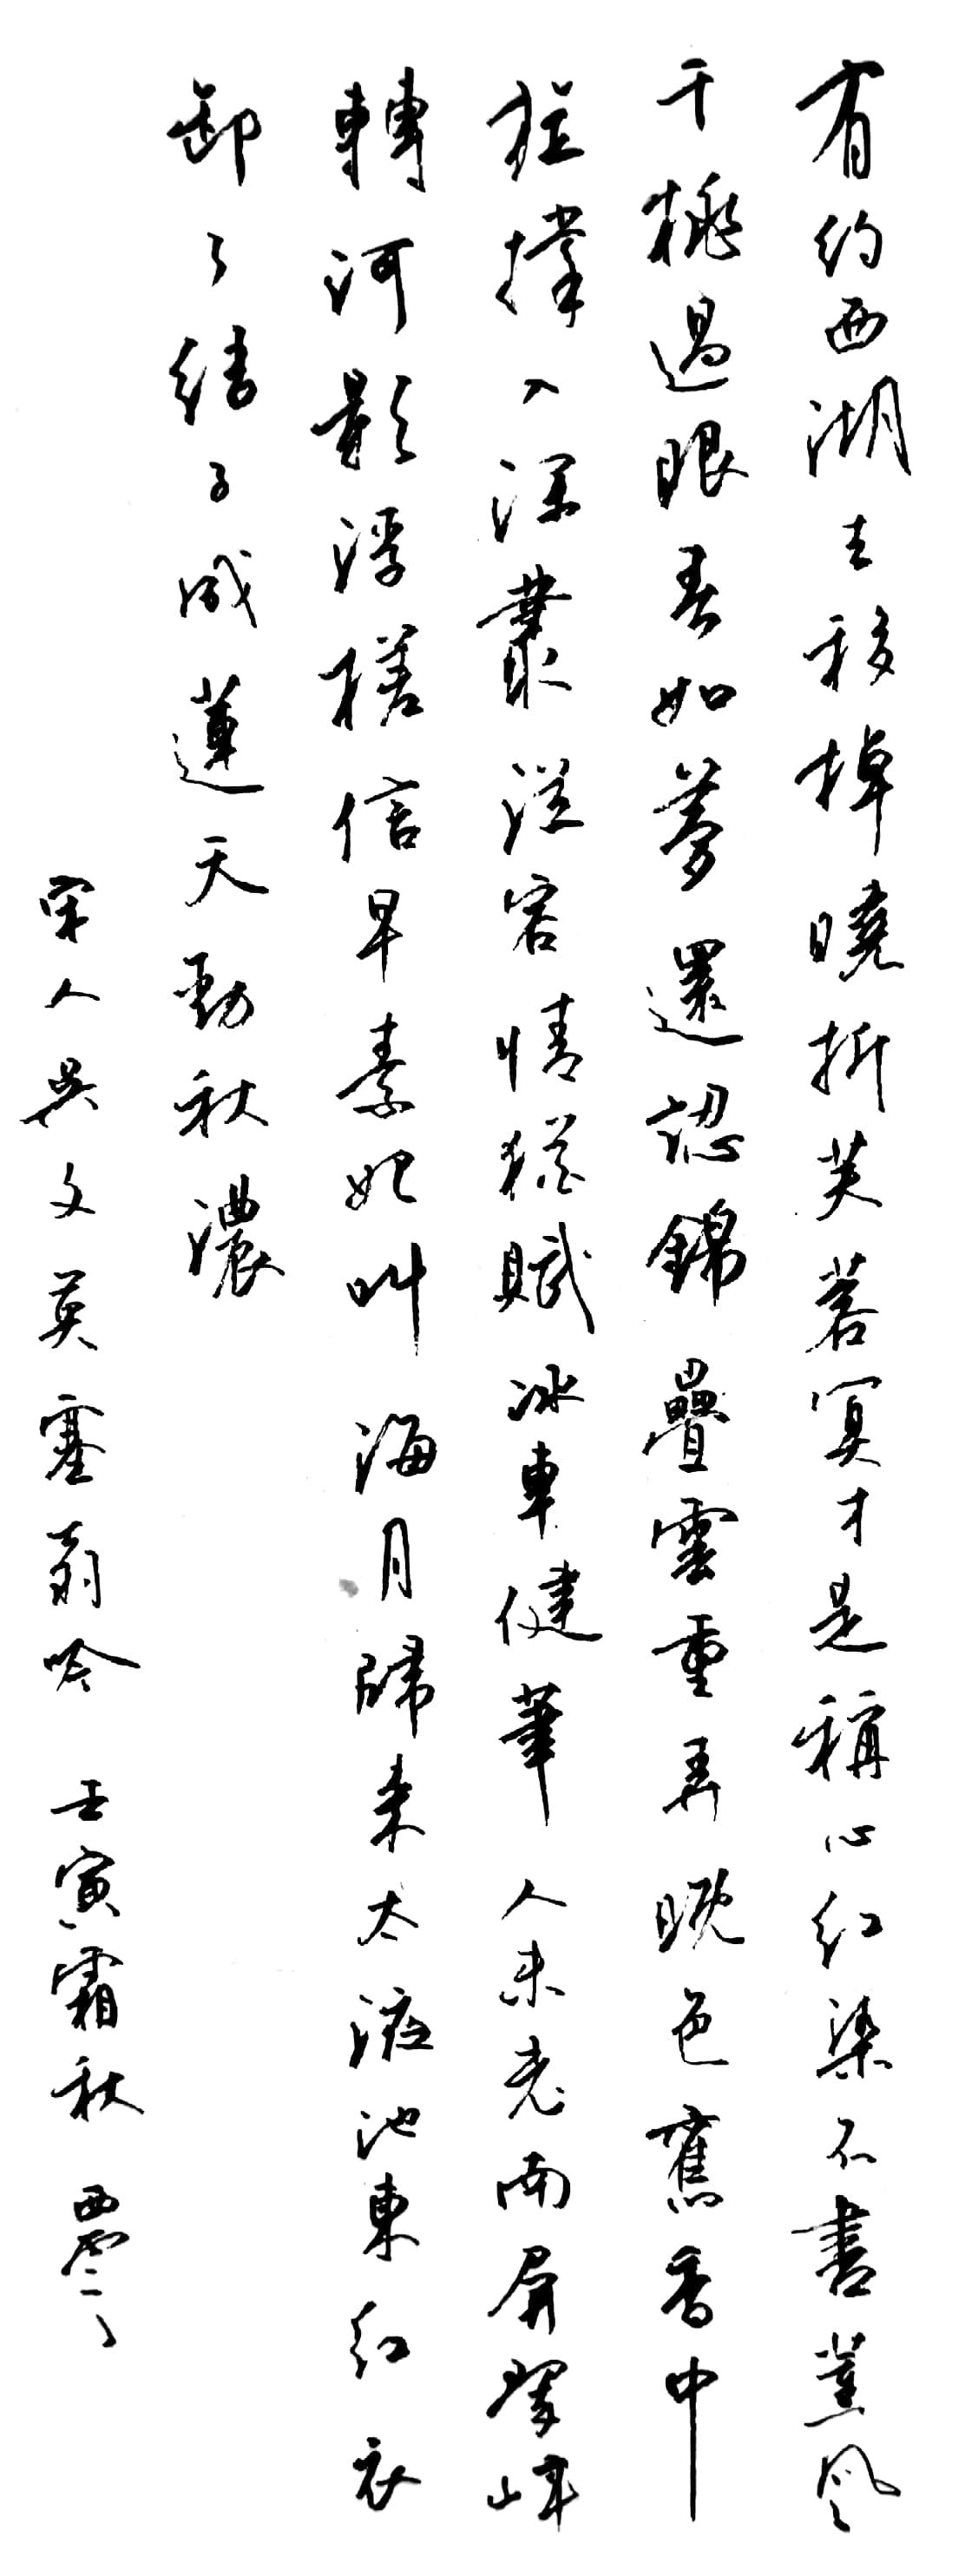 有約西湖去移棹曉折芙蓉算才是稱心紅染不盡薰風
千桃過眼春如夢還認錦疊雲重弄晚色舊香中
旋撐入深叢從容情猶賦冰車健筆人未老南屏翠峰
轉河影浮槎信早素妃叫海月歸來太液池東紅衣
卸了結子成蓮天勁秋濃
宋人吳文英塞翁吟 壬寅霜秋